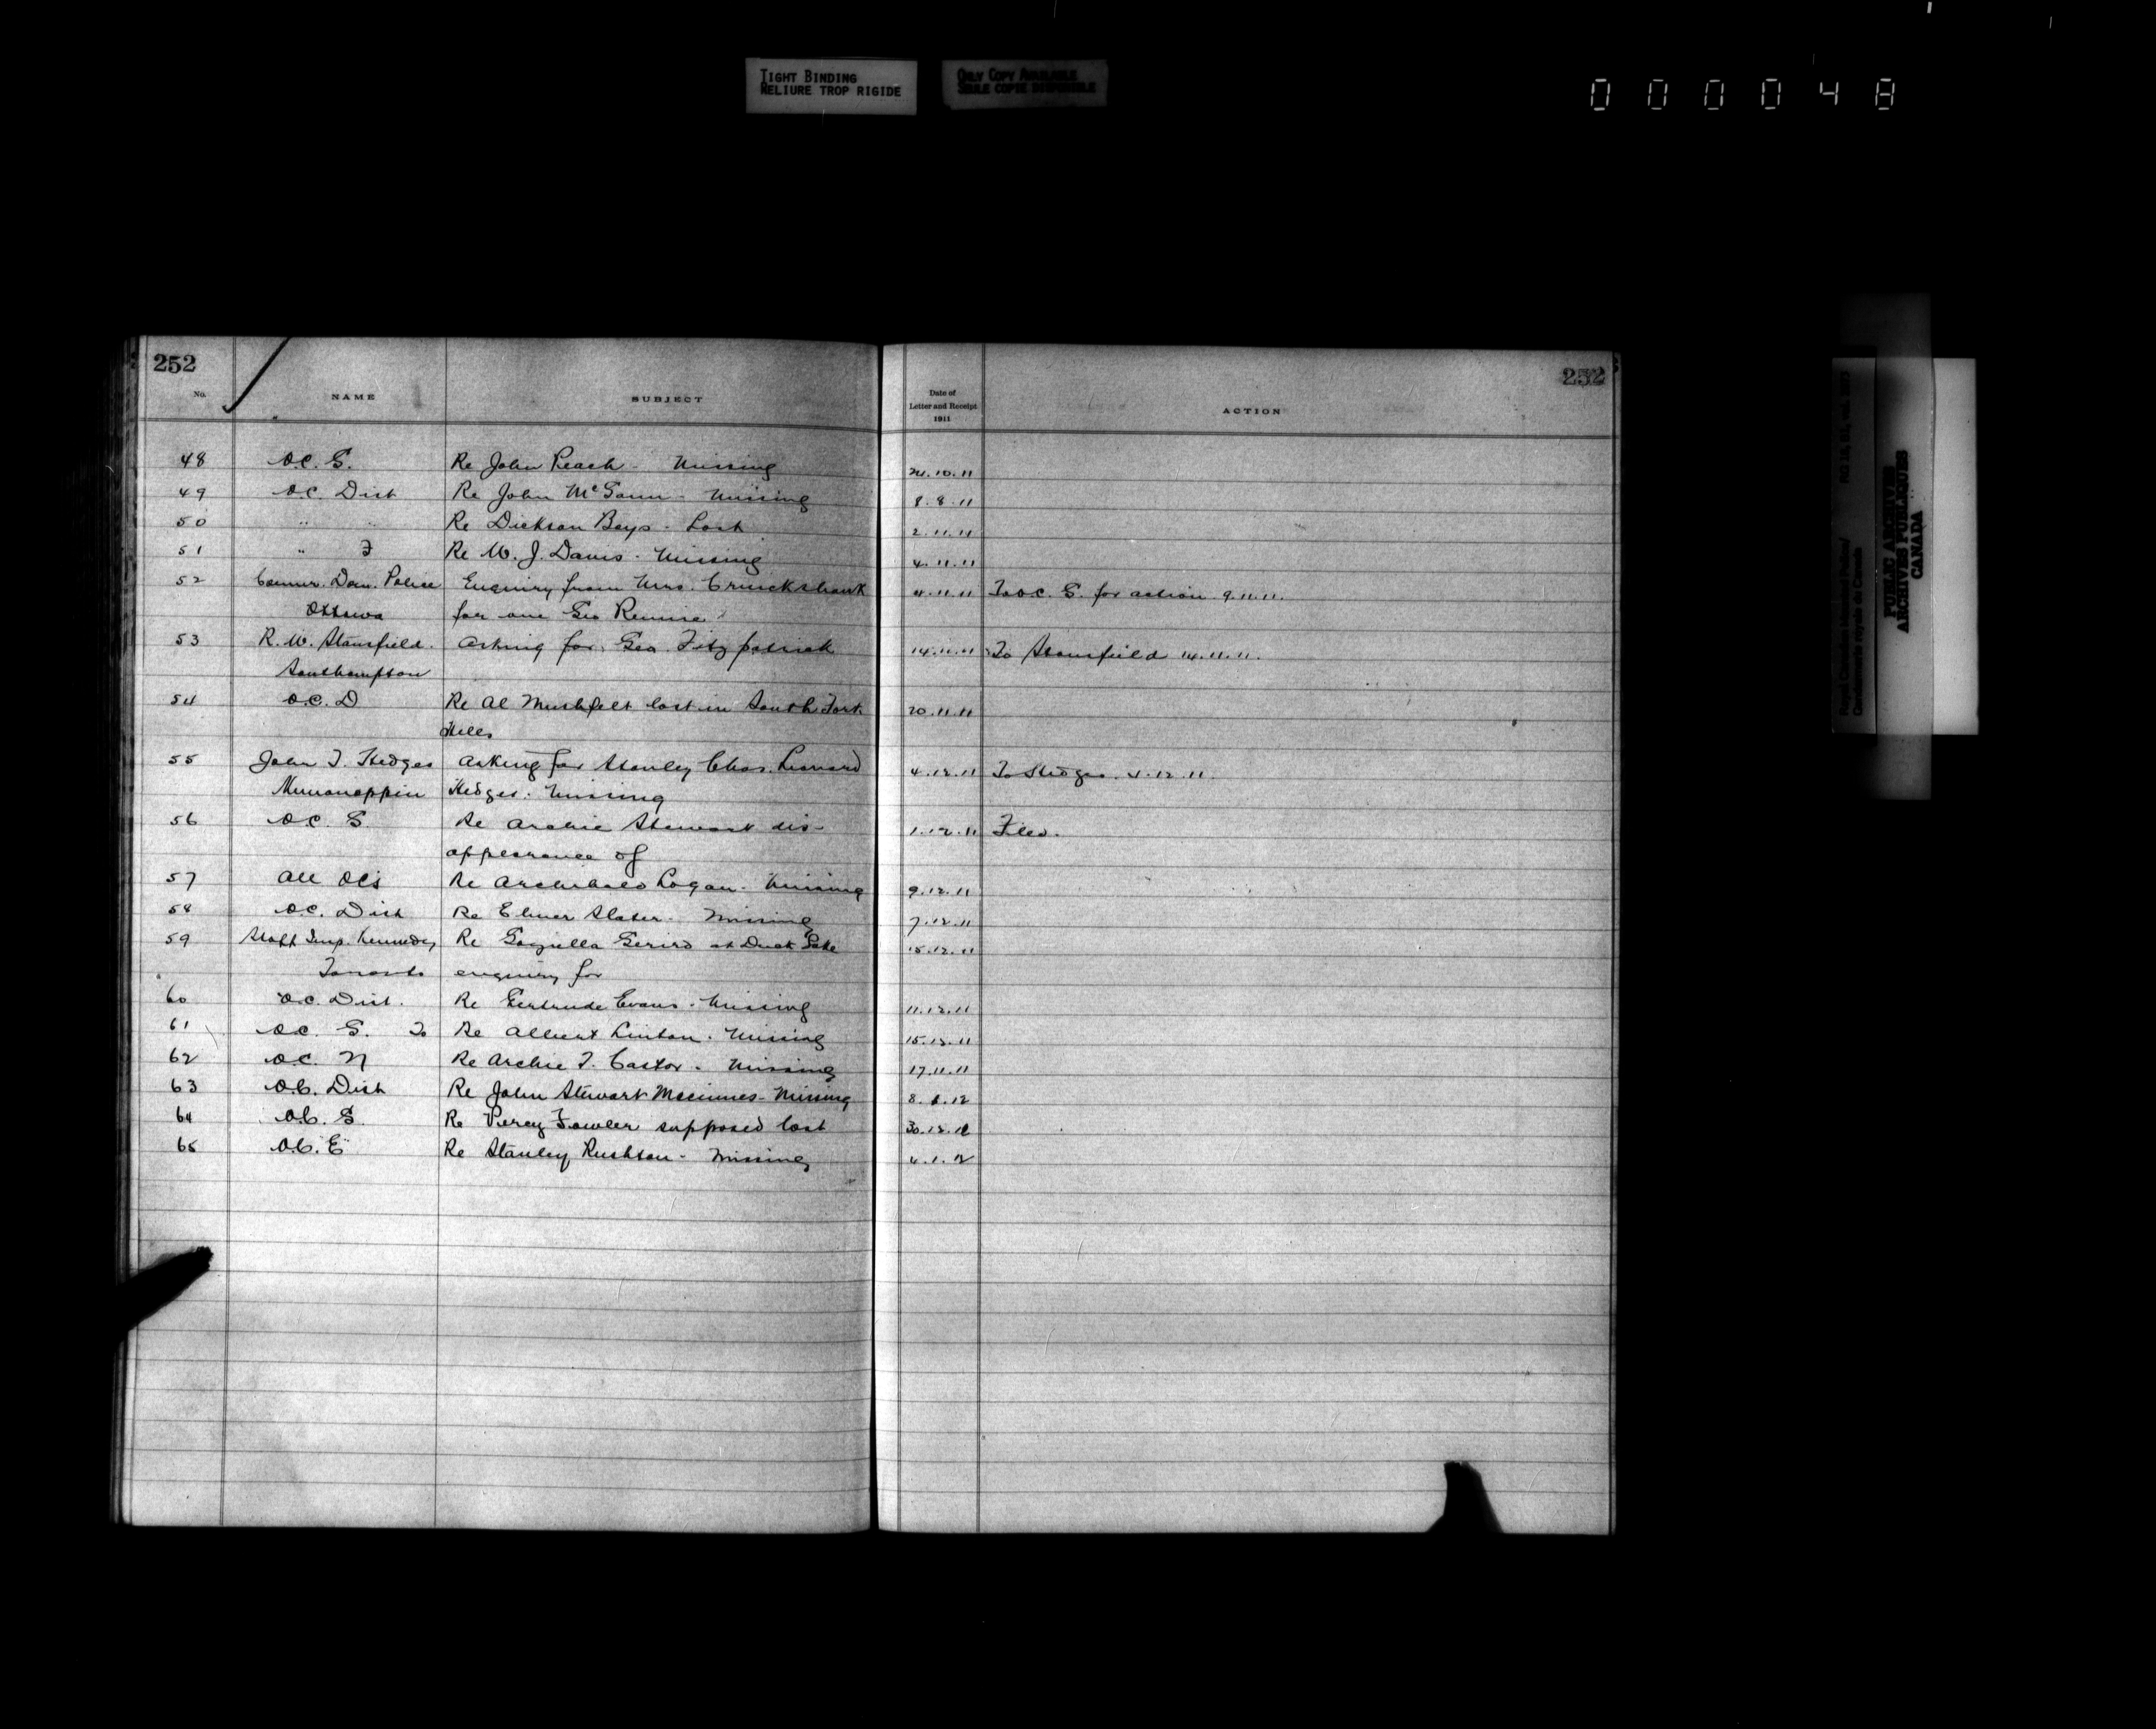 TIGHT BINDING
RELIURE TROP RIGIDE
ONLY COPY AVAILABLE
SEULE COPIE DISPONIBLE
000048
252
252
No.
NAME
SUBJECT
Date of
Letter and Receipt
1911
ACTION
48 O.C. G. Re John Peach - Missing 24.10.11
49 O.C. Dist Re John McGann - Missing 8.8.11
50 " " Re Dickson Boys - Lost 2.11.11
51 " F Re W. J. Davis - Missing 4.11.11
52 Commr. Dom. Police Enquiry from Mrs. Cruickshank 4.11.11 To O.C. G. for action 9.11.11.
Ottawa for one Geo Rennie
53 R. W. Stansfield. Asking for Geo. Fitzpatrick 14.11.11 To Stansfield 14.11.11.
Southampton
54 O.C. D Re Al lost in South Fork 20.11.11
Hills
55 John T. Hedges Asking for Stanley Chas. Leonard 4.12.11 To Hedges 4.12.11.
Hedges. Missing
56 O.C. G. Re Archie Stewart dis- 1.12.11 Filed.
appearance of
57 All OCs Re Archibald Logan - Missing 9.12.11
58 O.C. Dist Re Elmer Slater - Missing 7.12.11
59 Staff Insp. Kennedy Re at Duck Lake 15.12.11
Toronto enquiry for
60 O.C. Dist. Re Gertrude Evans - Missing 11.12.11
61 O.C. G. To Re Albert Linton - Missing 15.12.11
62 O.C. N Re Archie T. Castor - Missing 17.11.11
63 O.C. Dist Re John Stewart Macinnes - Missing 8.1.12
64 O.C. G. Re Percy Fowler supposed lost 30.12.11
65 O.C. E Re Stanley Rushton - Missing 4.1.12
Royal Canadian Mounted Police/
Gendarmerie royale du Canada
PUBLIC ARCHIVES
ARCHIVES PUBLIQUES
CANADA